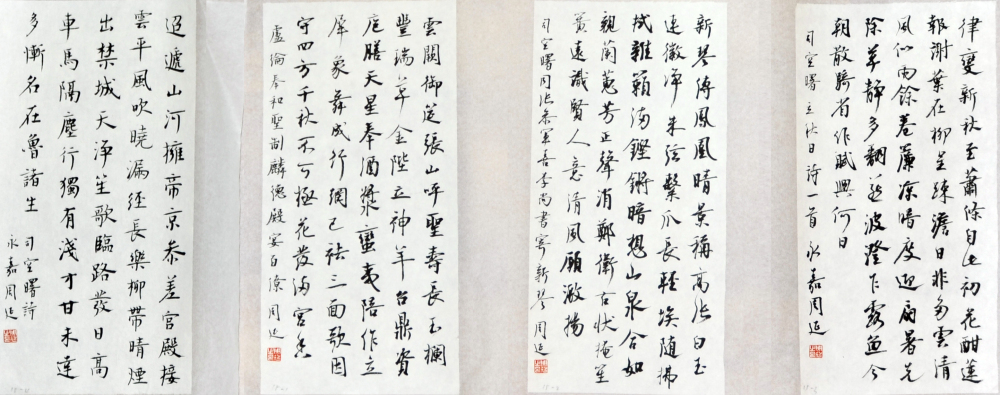 律變新秋至蕭條自此初花酣蓮
報謝葉在柳呈疎澹日非多雲清
風似雨餘卷簾凉暗度迎扇暑先
除草靜多翻燕波澄乍露魚今
朝散騎省作賦興何日
司空曙立秋日詩一首 永嘉周延
新琴傳鳳凰晴景稱高張白玉
連徽净朱弦繫爪長輕埃随拂
拭雜籟滿鏗鏘暗想山泉合如
親蘭蕙芳正聲消鄭衛古狀掩笙
簧遠識賢人意清風願激揚
司空曙同張參軍喜李尚書寄新琴 周延
雲闢御筵張山呼聖壽長玉欄
豐瑞草金陛立神羊台鼎資
庖膳天星奉酒漿蠻夷陪作立
犀象舞成行網已祛三面歌因
守四方千秋不可極花發滿宮香
盧倫奉和聖制麟德殿宴百僚 周延
迢遞山河擁帝京参差宮殿接
雲平風吹曉漏經長樂柳帶晴煙
出禁城天净笙歌臨路發日高
車馬隔塵行獨有淺才甘未達
多慚名在魯諸生
司空曙詩
永嘉周延